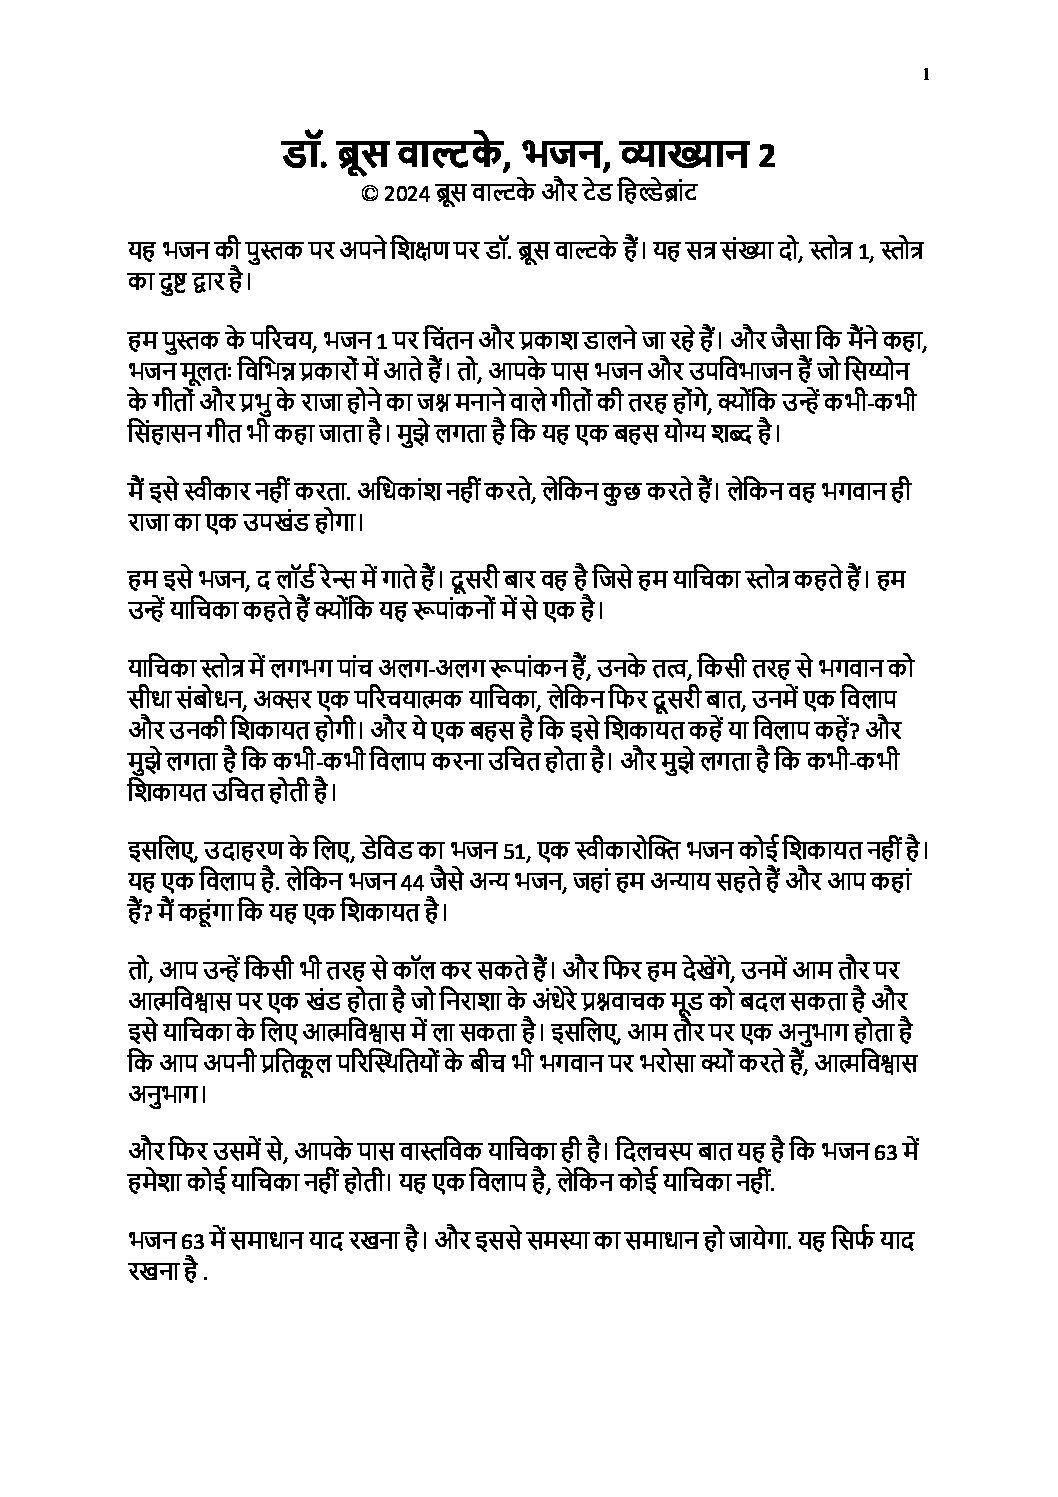 1
डॉ. ब्रूस वाल्टके, भजन, व्याख्यान 2
© 2024 ब्रूस वाल्टके और टेड हिल्डेब्रांट
यह भजन की पुस्तक पर अपने शिक्षण पर डॉ. ब्रूस वाल्टके हैं। यह सत्र संख्या दो, स्तोत्र 1, स्तोत्र
का दुष्ट द्वार है।
हम पुस्तक के परिचय, भजन 1 पर चिंतन और प्रकाश डालने जा रहे हैं। और जैसा कि मैंने कहा,
भजन मूलतः विभिन्न प्रकारों में आते हैं। तो, आपके पास भजन और उपविभाजन हैं जो सिय्योन
के गीतों और प्रभु के राजा होने का जश्न मनाने वाले गीतों की तरह होंगे, क्योंकि उन्हें कभी-कभी
सिंहासन गीत भी कहा जाता है। मुझे लगता है कि यह एक बहस योग्य शब्द है।
मैं इसे स्वीकार नहीं करता. अधिकांश नहीं करते, लेकिन कुछ करते हैं। लेकिन वह भगवान ही
राजा का एक उपखंड होगा।
हम इसे भजन, द लॉर्ड रेन्स में गाते हैं। दूसरी बार वह है जिसे हम याचिका स्तोत्र कहते हैं। हम
उन्हें याचिका कहते हैं क्योंकि यह रूपांकनों में से एक है।
याचिका स्तोत्र में लगभग पांच अलग-अलग रूपांकन हैं, उनके तत्व, किसी तरह से भगवान को
सीधा संबोधन, अक्सर एक परिचयात्मक याचिका, लेकिन फिर दूसरी बात, उनमें एक विलाप
और उनकी शिकायत होगी। और ये एक बहस है कि इसे शिकायत कहें या विलाप कहें? और
मुझे लगता है कि कभी-कभी विलाप करना उचित होता है। और मुझे लगता है कि कभी-कभी
शिकायत उचित होती है।
इसलिए, उदाहरण के लिए, डेविड का भजन 51, एक स्वीकारोक्ति भजन कोई शिकायत नहीं है।
यह एक विलाप है. लेकिन भजन 44 जैसे अन्य भजन, जहां हम अन्याय सहते हैं और आप कहां
हैं? मैं कहूंगा कि यह एक शिकायत है।
तो, आप उन्हें किसी भी तरह से कॉल कर सकते हैं। और फिर हम देखेंगे, उनमें आम तौर पर
आत्मविश्वास पर एक खंड होता है जो निराशा के अंधेरे प्रश्नवाचक मूड को बदल सकता है और
इसे याचिका के लिए आत्मविश्वास में ला सकता है। इसलिए, आम तौर पर एक अनुभाग होता है
कि आप अपनी प्रतिकूल परिस्थितियों के बीच भी भगवान पर भरोसा क्यों करते हैं, आत्मविश्वास
अनुभाग।
और फिर उसमें से, आपके पास वास्तविक याचिका ही है। दिलचस्प बात यह है कि भजन 63 में
हमेशा कोई याचिका नहीं होती। यह एक विलाप है, लेकिन कोई याचिका नहीं.
भजन 63 में समाधान याद रखना है। और इससे समस्या का समाधान हो जायेगा. यह सिर्फ याद
रखना है .